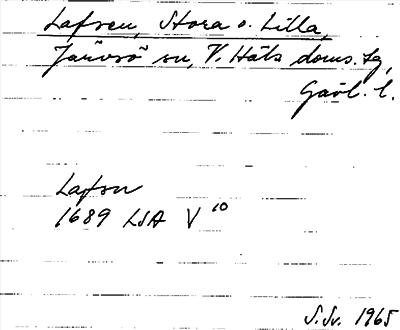 Lafsen, Stora o. Lilla,
Järvsö sn, V. Häls doms. tg,
Gävl. l.
Lafsn
1689 LSA V 10
S.Sv. 1965